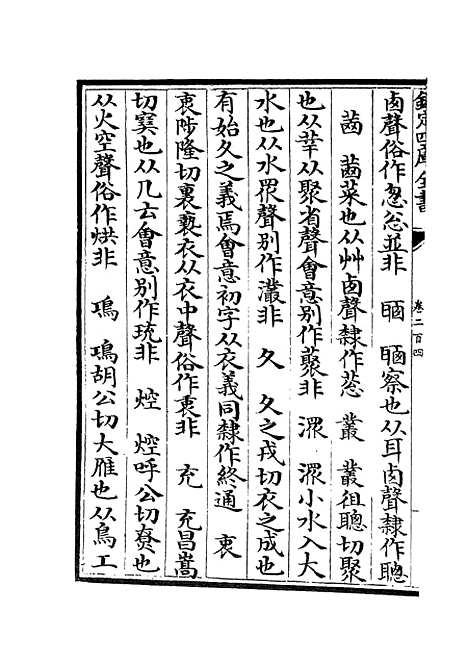 欽定四庫全書
卷二百四
囪聲俗作怱忩並非　䁓　䁓察也从耳囪聲隸作聰
䓗　䓗菜也从艸囪聲隸作蔥　叢　叢徂聰切聚
也从丵从聚省聲會意別作藂非　潀　潀小水入大
水也从水眾聲別作灇非　夂　夂之戎切衣之成也
有始久之義焉會意初字从衣義同隸作終通　衷
衷陟隆切裏褻衣从衣中聲俗作衷非　充　充昌嵩
切窔也从几𠫓會意別作珫非　焢　焢呼公切尞也
从火空聲俗作烘非　鳿　鳿胡公切大雁也从鳥工